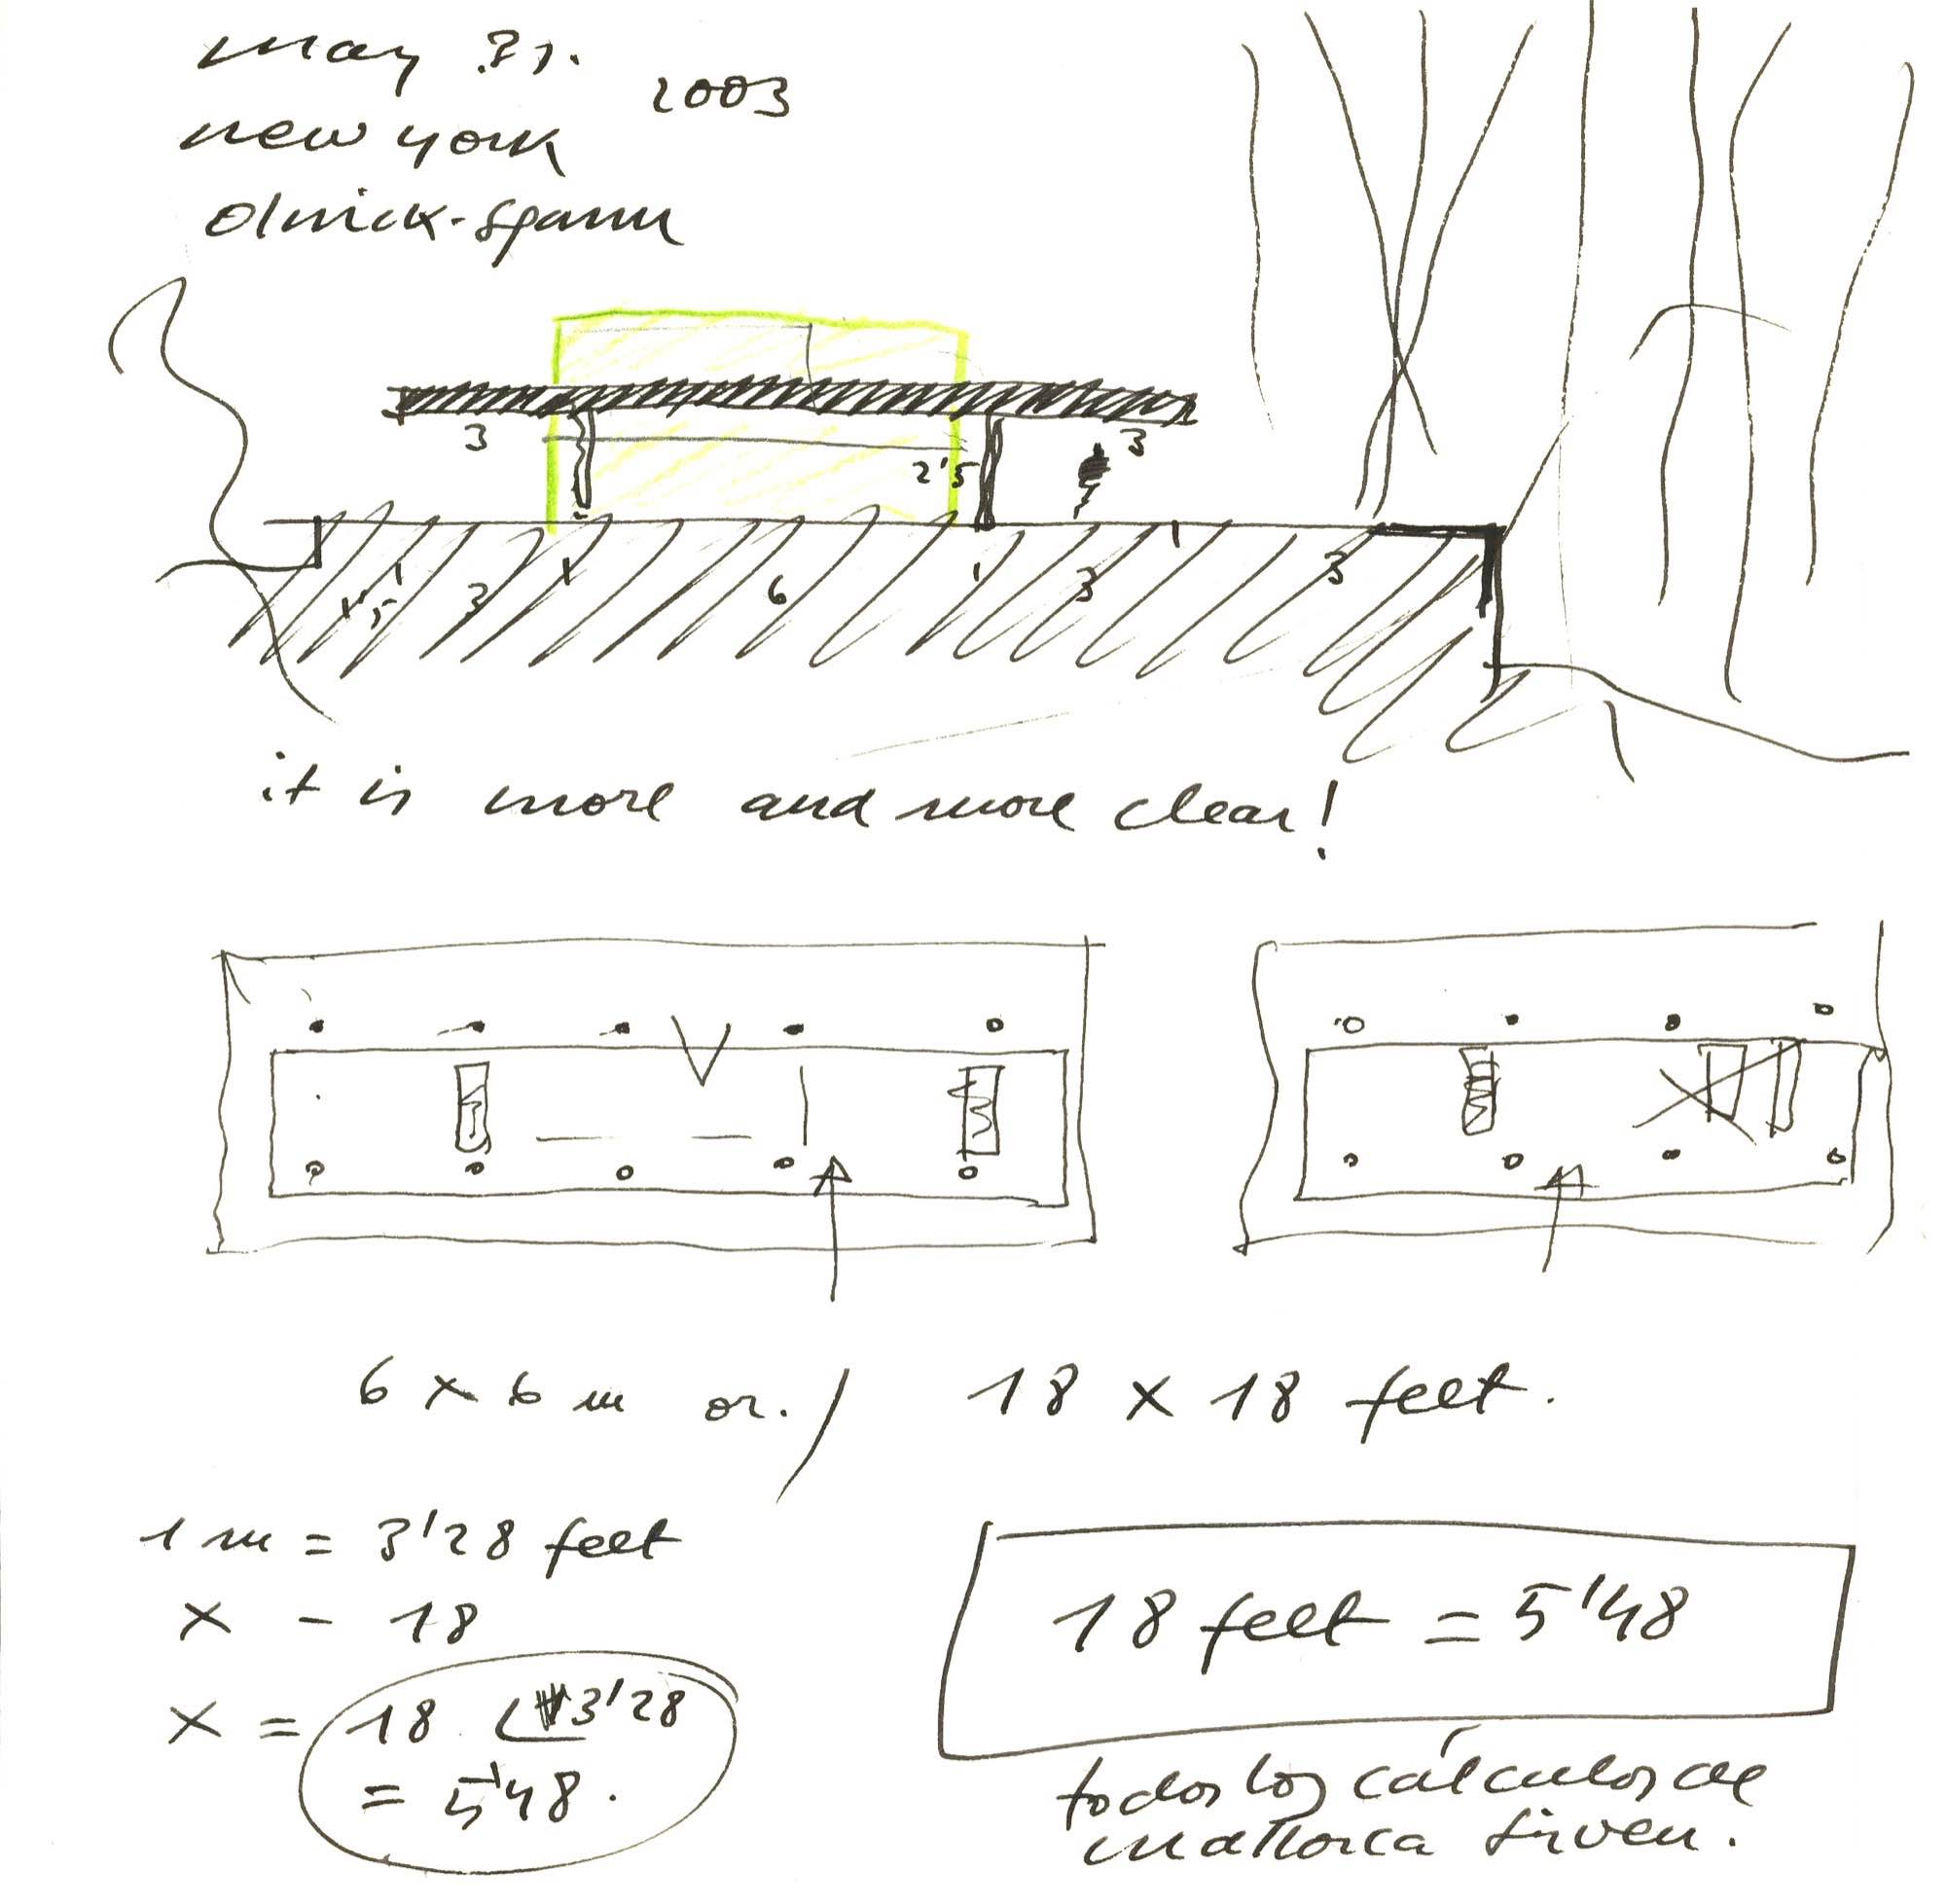 may 31.
2003
new york
olnick-spanu
3
3
2'5
3
6
3
3
it is more and more clear!
6 x 6 m or. / 18 x 18 feet.
1 m = 3'28 feet
x - 18
x = 18 3'28
= 5'48.
18 feet = 5'48
todos los cálculos de
mallorca sirven.